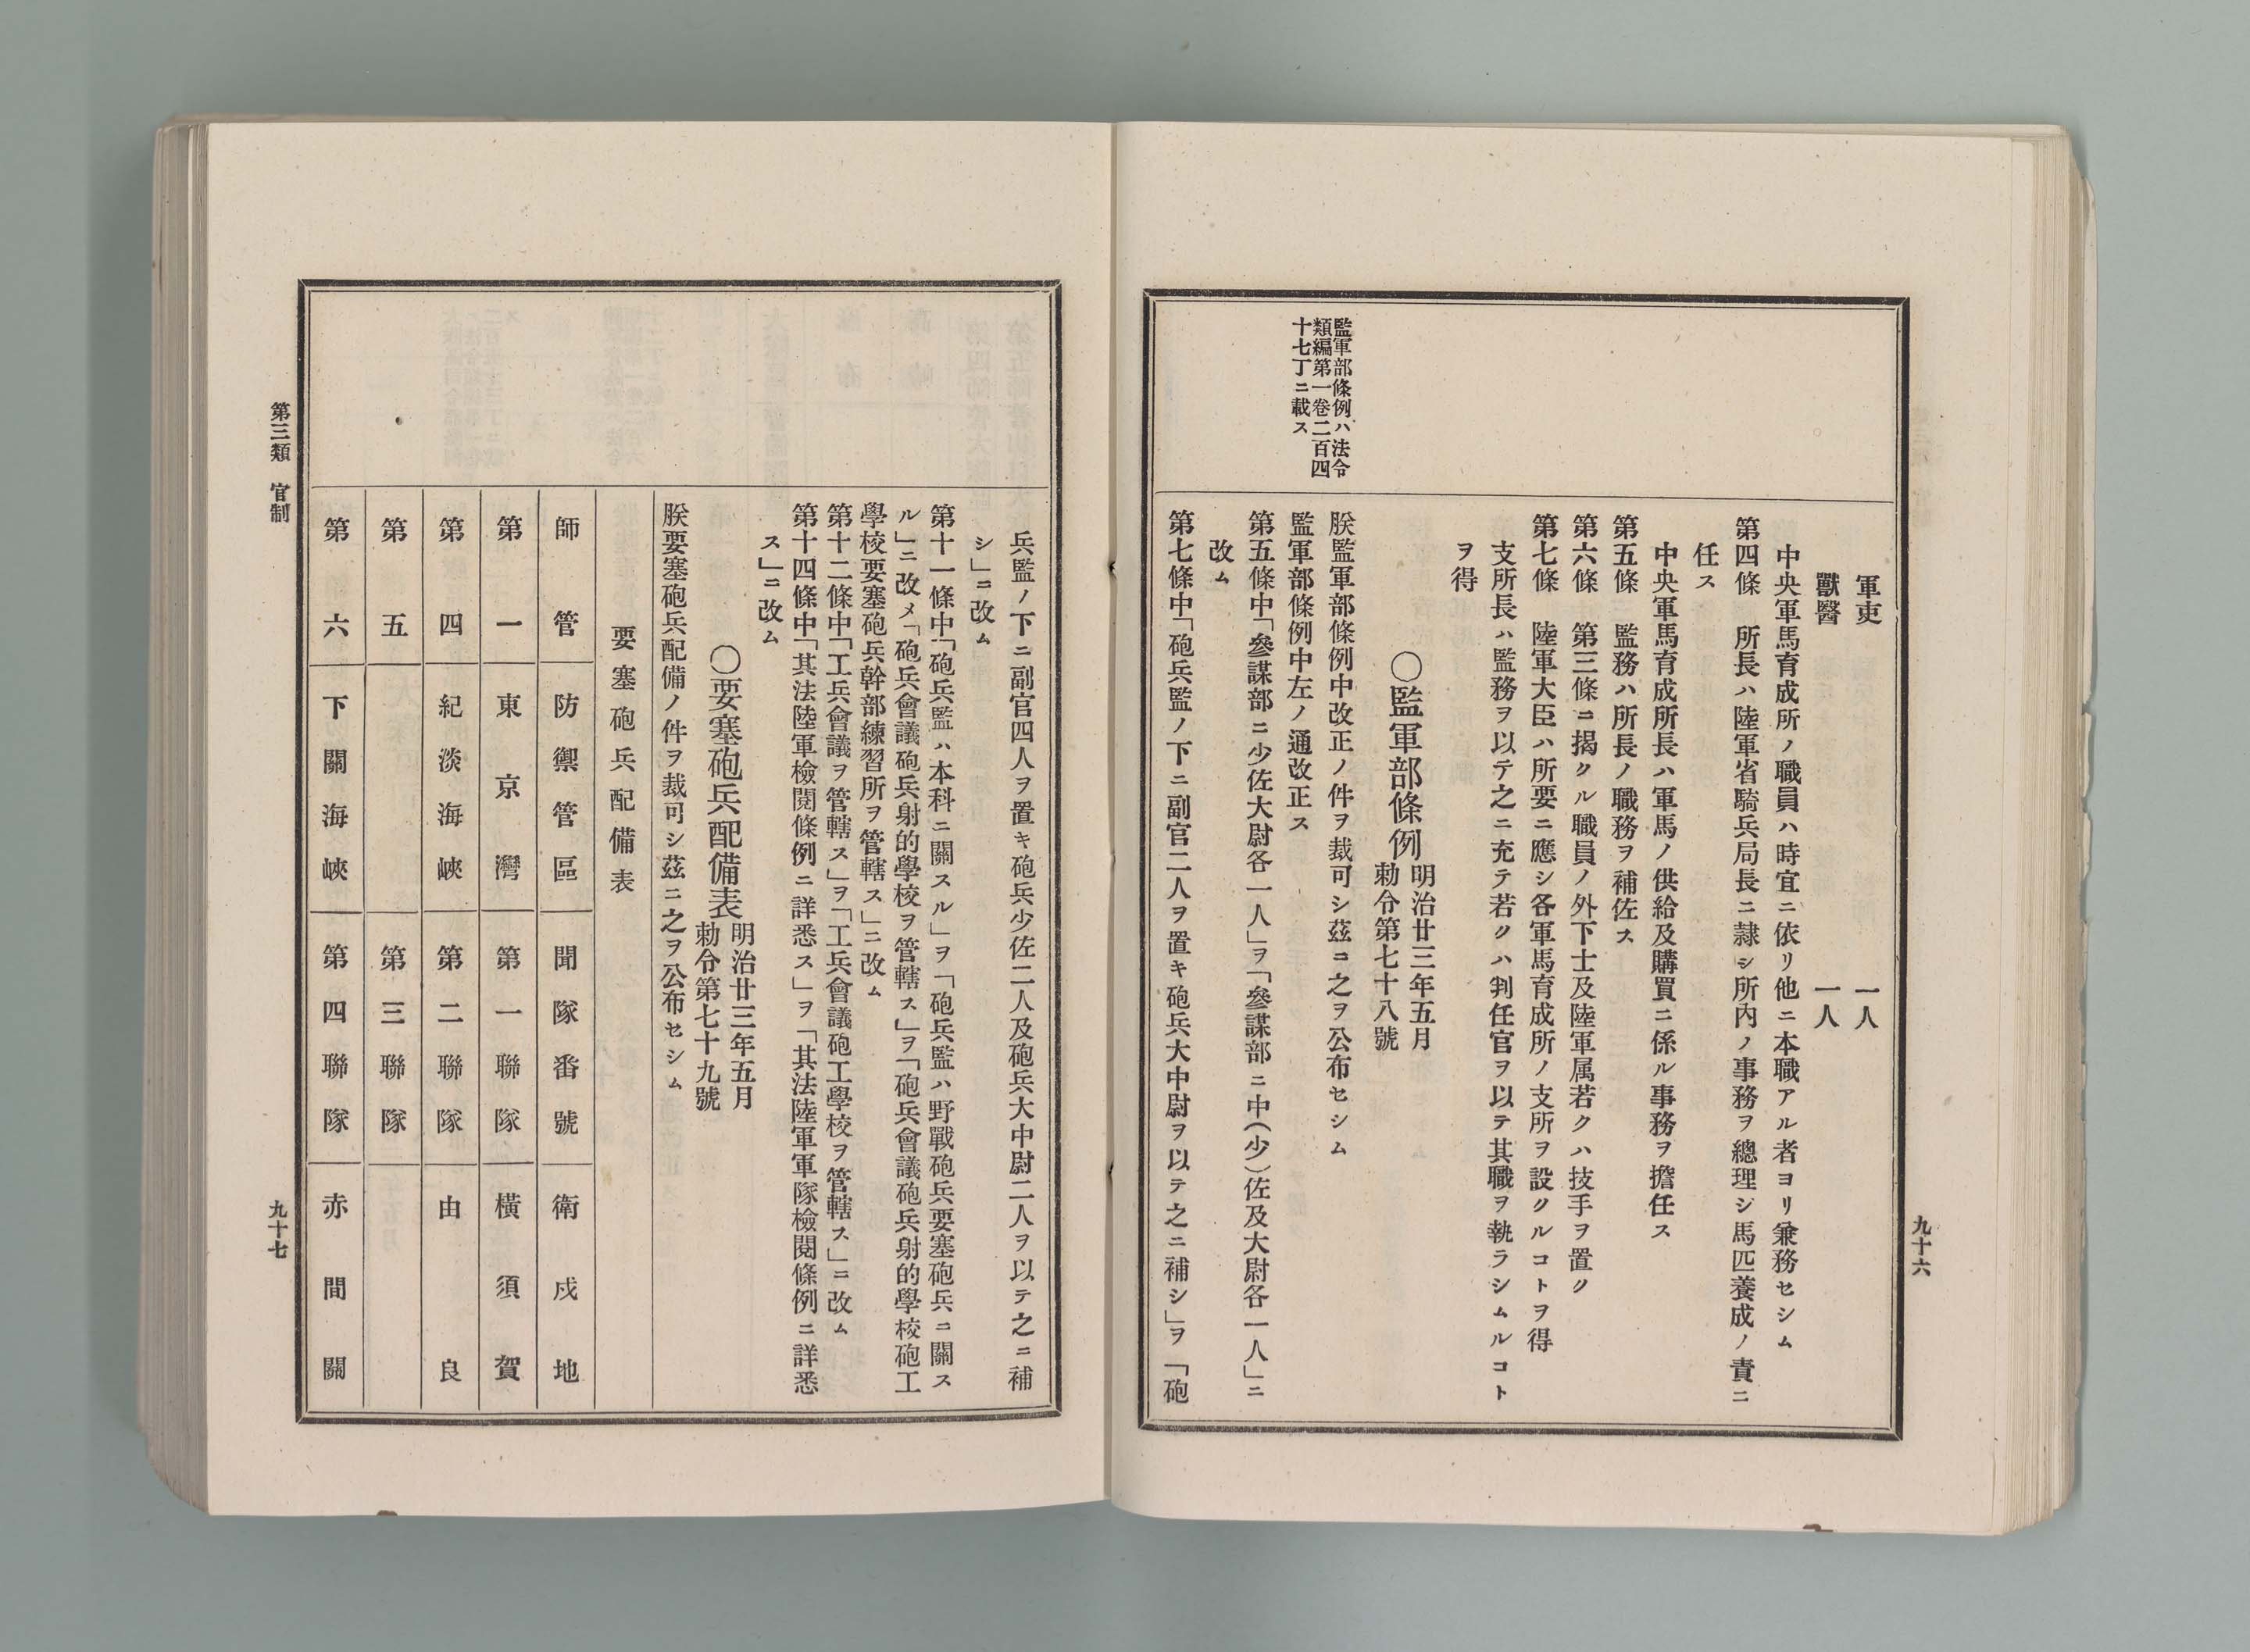 軍吏　一人
獸醫　一人
中央軍馬育成所ノ職員ハ時宜ニ依リ他ニ本職アル者ヨリ兼務セシム
第四條　所長ハ陸軍省騎兵局長ニ隷シ所内ノ事務ヲ總理シ馬匹養成ノ責ニ
任ス
中央軍馬育成所長ハ軍馬ノ供給及購買ニ係ル事務ヲ擔任ス
第五條　監務ハ所長ノ職務ヲ補佐ス
第六條　第三條ニ揭クル職員ノ外下士及陸軍属若クハ技手ヲ置ク
第七條　陸軍大臣ハ所要ニ應シ各軍馬育成所ノ支所ヲ設クルコトヲ得
支所長ハ監務ヲ以テ之ニ充テ若クハ判任官ヲ以テ其職ヲ執ラシムルコト
ヲ得
〇監軍部條例
明治廿三年五月
勅令第七十八號
監軍部條例ハ法令
類編第一卷二百四
十七丁ニ載ス
朕監軍部條例中改正ノ件ヲ裁可シ茲ニ之ヲ公布セシム
監軍部條例中左ノ通改正ス
第五條中「參謀部ニ少佐大尉各一人」ヲ「參謀部ニ中(少)佐及大尉各一人」ニ
改ム
第七條中「砲兵監ノ下ニ副官二人ヲ置キ砲兵大中尉ヲ以テ之ニ補シ」ヲ「砲
九十六
兵監ノ下ニ副官四人ヲ置キ砲兵少佐二人及砲兵大中尉二人ヲ以テ之ニ補
シ」ニ改ム
第十一條中「砲兵監ハ本科ニ關スル」ヲ「砲兵監ハ野戰砲兵要塞砲兵ニ關ス
ル」ニ改メ「砲兵會議砲兵射的學校ヲ管轄ス」ヲ「砲兵會議砲兵射的學校砲工
學校要塞砲兵幹部練習所ヲ管轄ス」ニ改ム
第十二條中「工兵會議ヲ管轄ス」ヲ「工兵會議砲工學校ヲ管轄ス」ニ改ム
第十四條中「其法陸軍檢閱條例ニ詳悉ス」ヲ「其法陸軍軍隊檢閱條例ニ詳悉
ス」ニ改ム
〇要塞砲兵配備表
明治廿三年五月
勅令第七十九號
朕要塞砲兵配備ノ件ヲ裁可シ茲ニ之ヲ公布セシム
要塞砲兵配備表
師管　防禦管區　聞隊番號　衛戍地
第一　東京灣　第一聯隊　橫須賀
第四　紀淡海峽　第二聯隊　由良
第五　第三聯隊
第六　下關海峽　第四聯隊　赤間關
第三類　官制
九十七